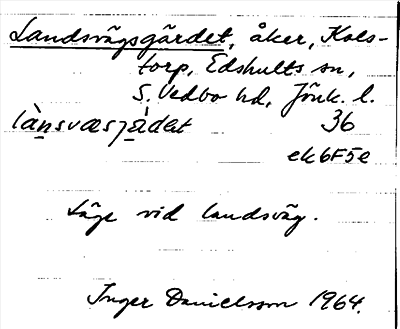 Landsvägsgärdet, åker, Kols-
torp, Edshults sn,
S. Vedbo hd, Jönk. l.
lànsvæsjæ̀det 36
ek6F5e
Läge vid landsväg.
Inger Danielsson 1964.